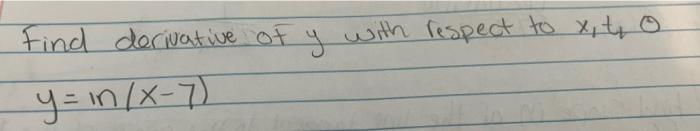 Find derivative of y with respect to x, t, θ
y = ln(x-7)